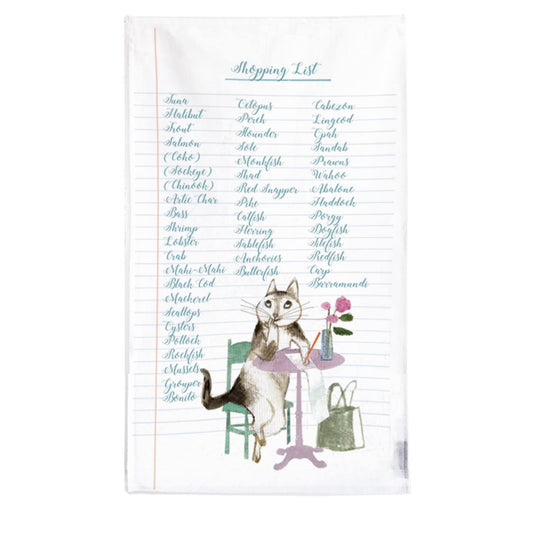 Shopping List
Tuna
Halibut
Trout
Salmon
(Coho)
(Sockeye)
(Chinook)
Artic Char
Bass
Shrimp
Lobster
Crab
Mahi-Mahi
Black Cod
Mackerel
Scallops
Oysters
Pollock
Rockfish
Mussels
Grouper
Bonito
Octopus
Perch
Flounder
Sole
Monkfish
Shad
Red Snapper
Pike
Catfish
Herring
Sablefish
Anchovies
Butterfish
Cabezon
Lingcod
Opah
Sandab
Prawns
Wahoo
Abalone
Haddock
Porgy
Dogfish
Tilefish
Redfish
Carp
Barramundi